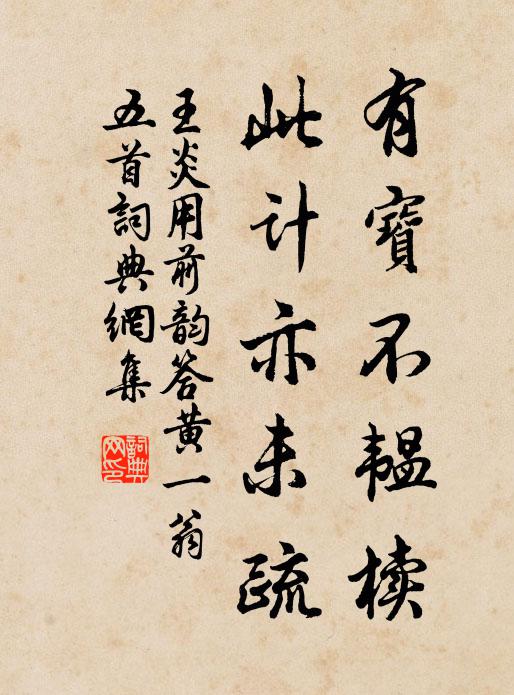 有寶不韞櫝
此計亦未疏
王炎用前韵答黄一翁
五首詞典網集
詞典
网印